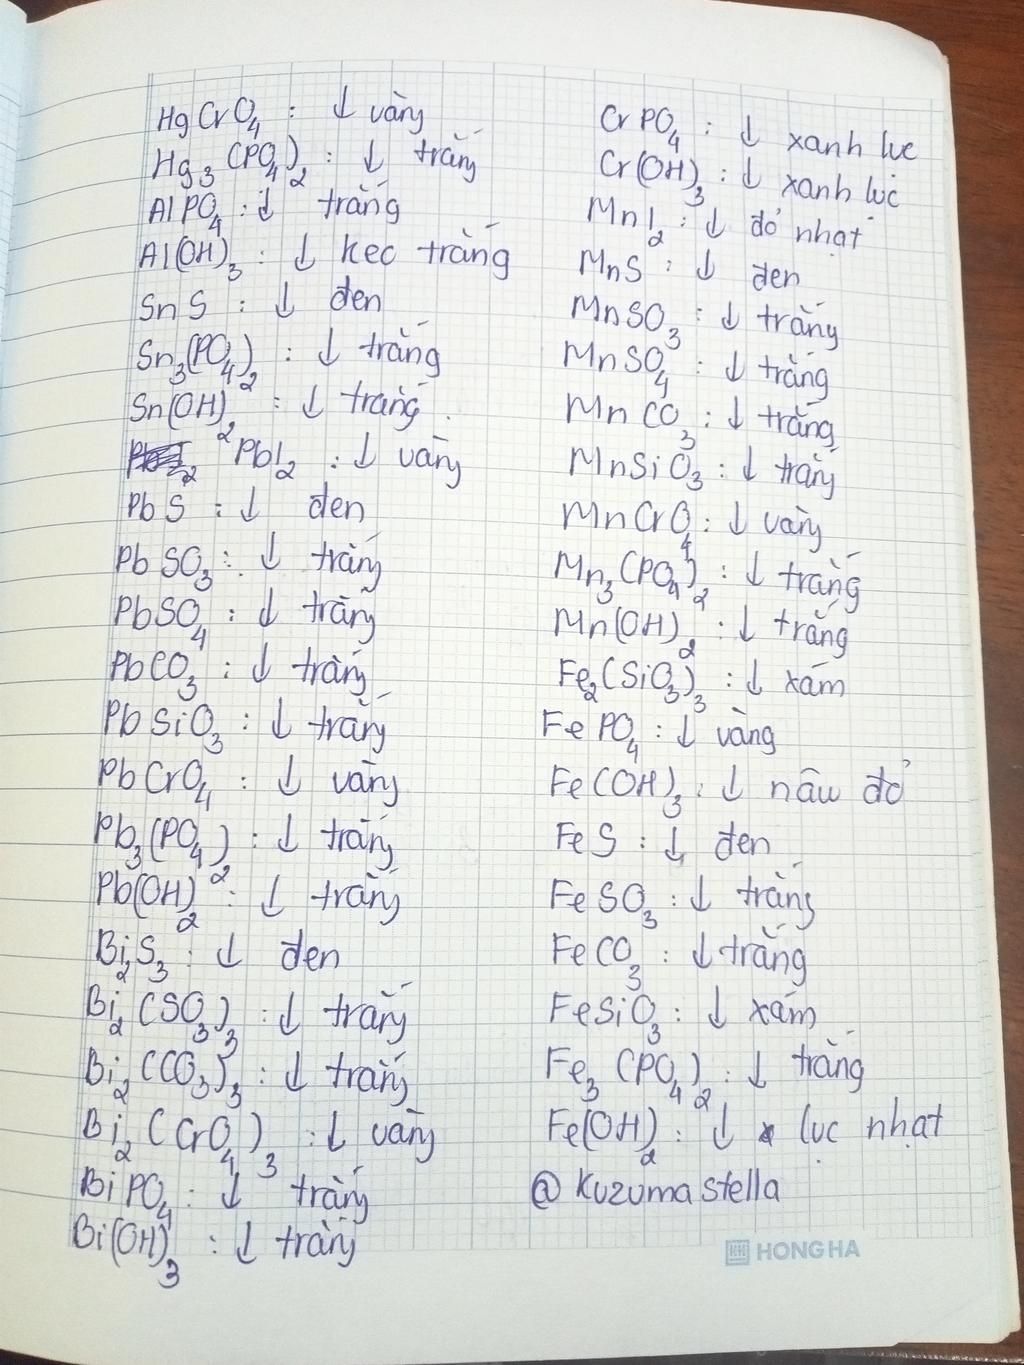 HgCrO4 : ↓ vàng
Hg3(PO4)2 : ↓ trắng
AlPO4 : ↓ trắng
Al(OH)3 : ↓ keo trắng
SnS : ↓ đen
Sn3(PO4)2 : ↓ trắng
Sn(OH)2 : ↓ trắng
PbI2 : ↓ vàng
PbS : ↓ đen
PbSO3 : ↓ trắng
PbSO4 : ↓ trắng
PbCO3 : ↓ trắng
PbSiO3 : ↓ trắng
PbCrO4 : ↓ vàng
Pb3(PO4)2 : ↓ trắng
Pb(OH)2 : ↓ trắng
Bi2S3 : ↓ đen
Bi2(SO3)3 : ↓ trắng
Bi2(CO3)3 : ↓ trắng
Bi2(CrO4)3 : ↓ vàng
BiPO4 : ↓ trắng
Bi(OH)3 : ↓ trắng
CrPO4 : ↓ xanh lục
Cr(OH)3 : ↓ xanh lục
MnI2 : ↓ đỏ nhạt
MnS : ↓ đen
MnSO3 : ↓ trắng
MnSO4 : ↓ trắng
MnCO3 : ↓ trắng
MnSiO3 : ↓ trắng
MnCrO4 : ↓ vàng
Mn3(PO4)2 : ↓ trắng
Mn(OH)2 : ↓ trắng
Fe2(SiO3)3 : ↓ xám
FePO4 : ↓ vàng
Fe(OH)3 : ↓ nâu đỏ
FeS : ↓ đen
FeSO3 : ↓ trắng
FeCO3 : ↓ trắng
FeSiO3 : ↓ xám
Fe3(PO4)2 : ↓ trắng
Fe(OH)2 : ↓ lục nhạt
@ Kuzuma stella
HH HONG HA